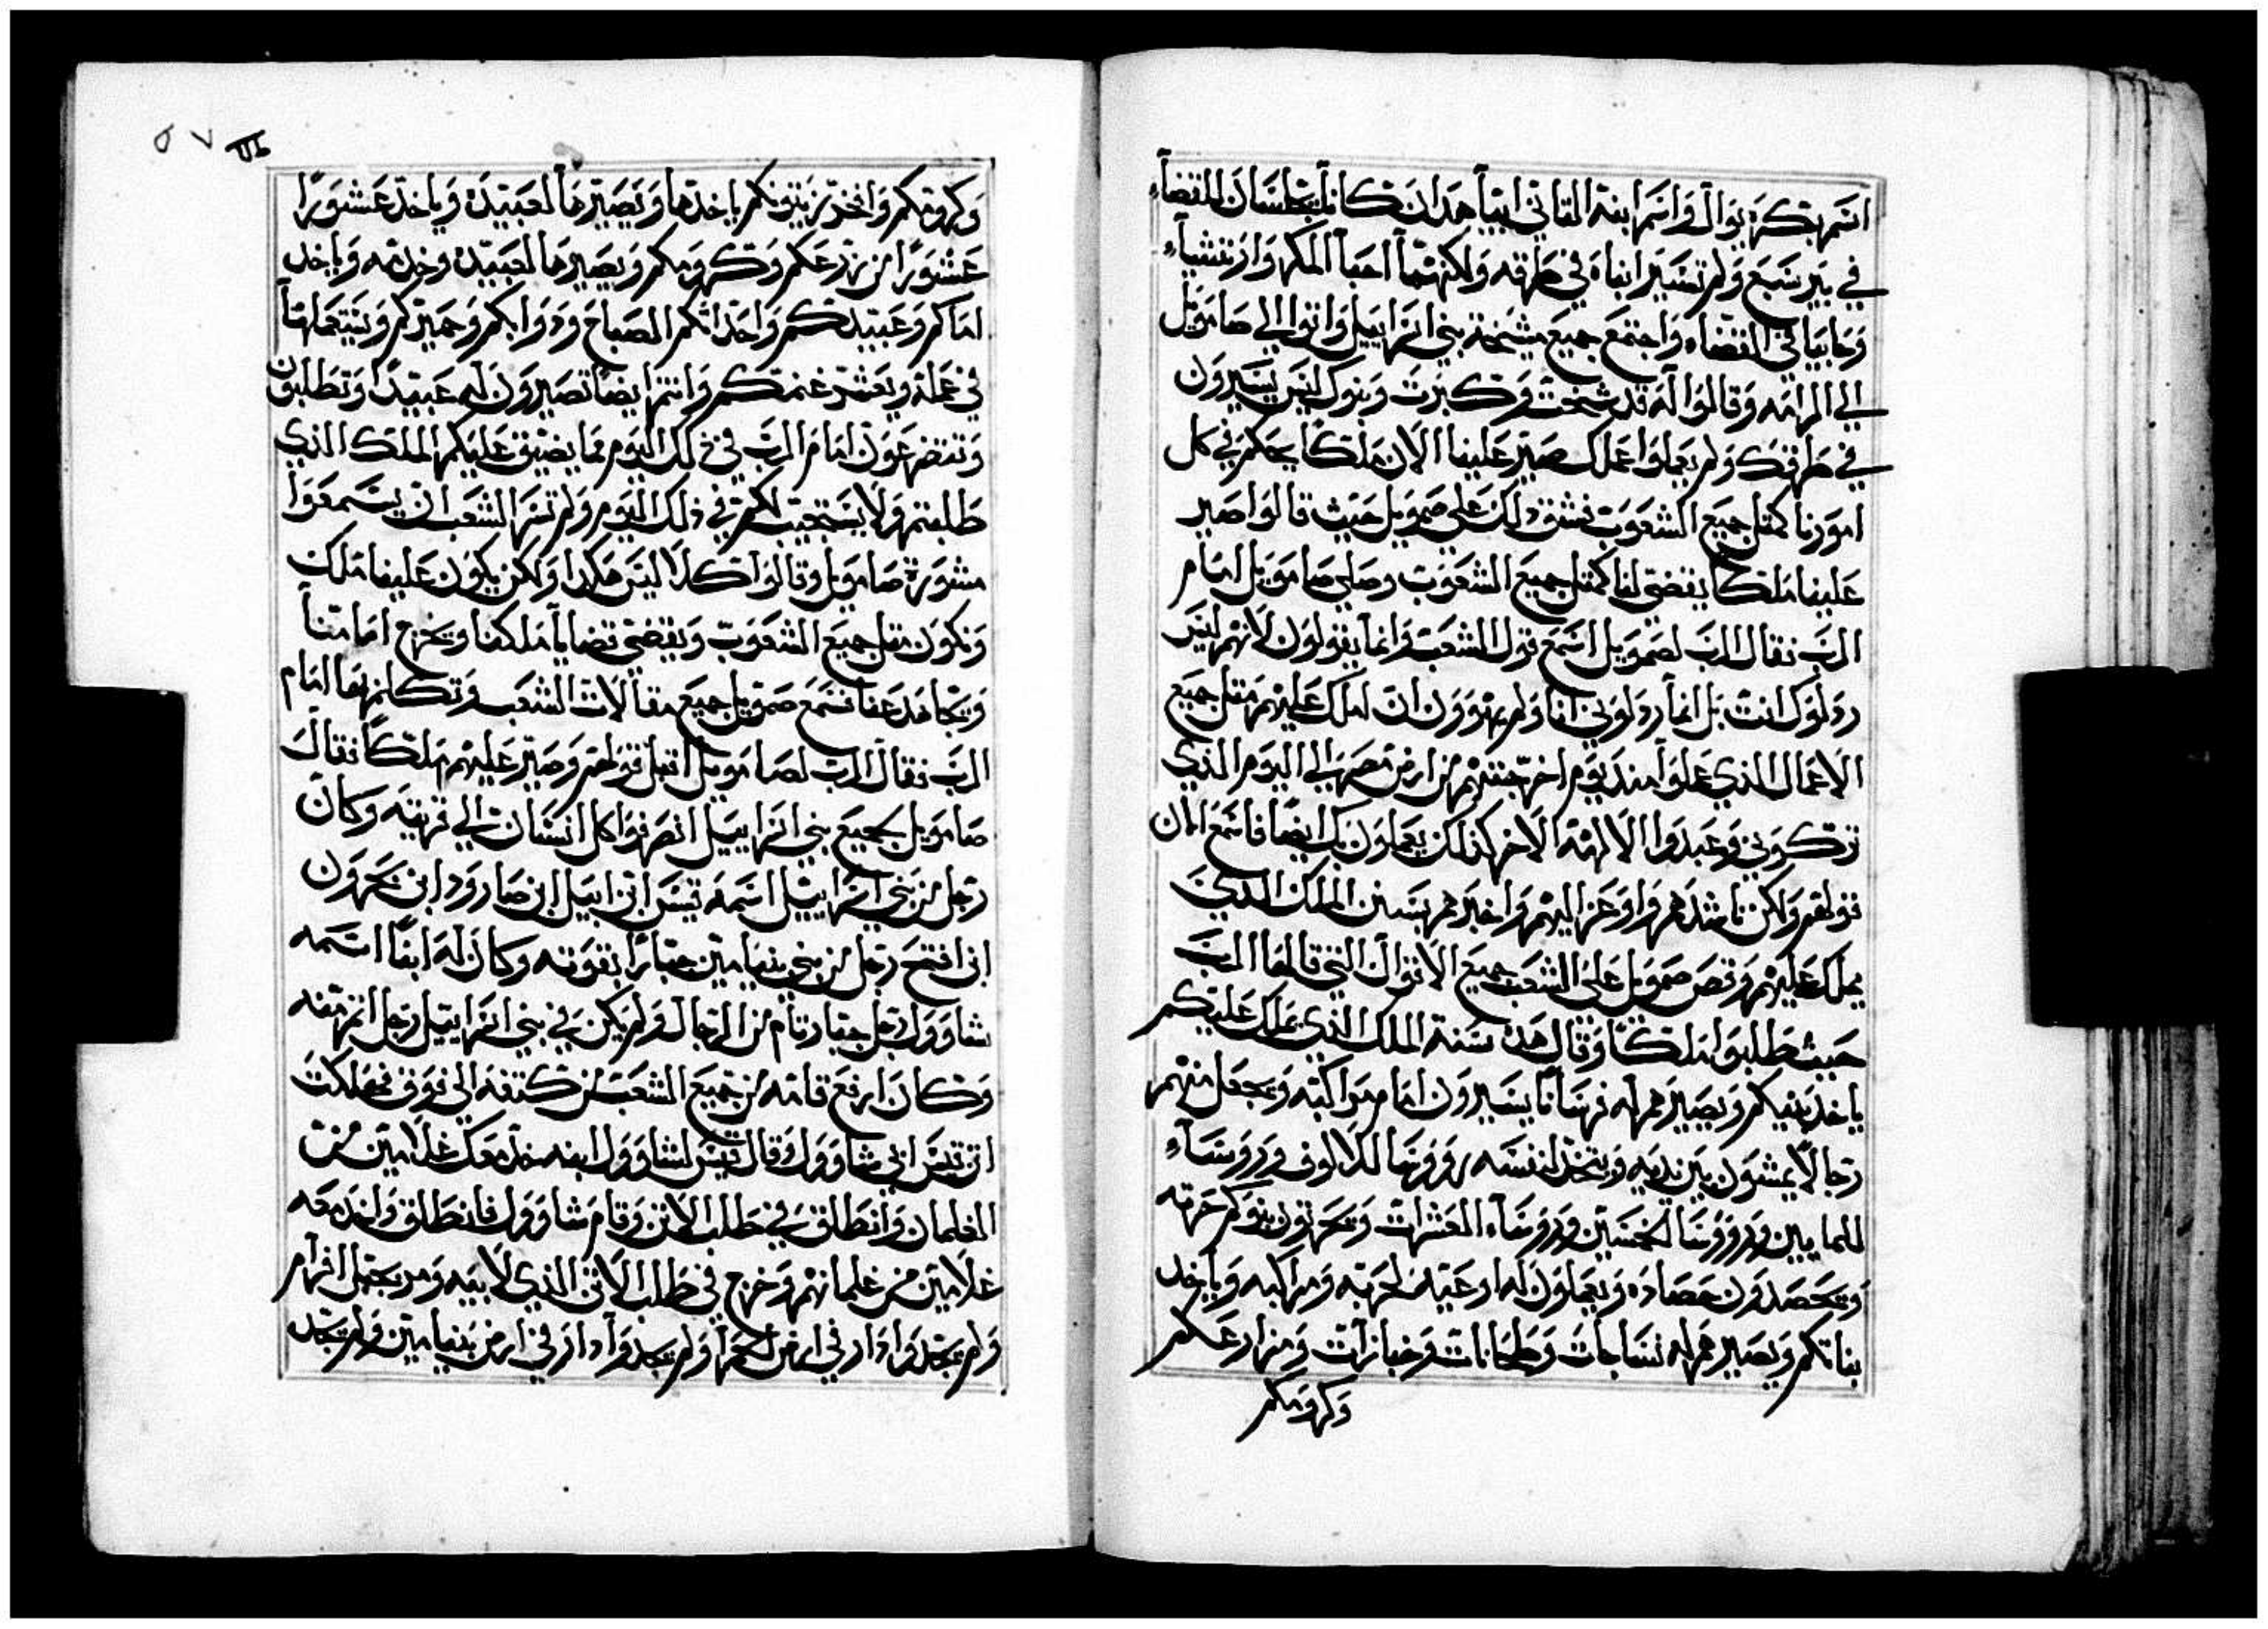 اسم بكره يوال واسم ابنه الثاني ابيا هدان كانا يجلسان للقضاء
في بير سبع ولم تسير ابناه في طرقه ولكنهما احبا المكر وارتشياء
وحابيا في القضاء واجتمع جميع مشيخة بني اسراييل واتوا الي صامويل
الي الرامه وقالوا له قد شخت وكبرت وبنوك ليس يسيرون
في طرقك ولم يعملوا عملك صير علينا الان ملكا يحكم في كل
امورنا كمثل جميع الشعوب فشق ذلك علي صمويل حيث قالوا صير
علينا ملكا يقضي لنا كمثل جميع الشعوب وصلي صامويل امام
الرب فقال الرب لصمويل اسمع قول الشعب وانما يقولون لانهم ليس
ردلوك انت بل انما ردلوني انا ولم يهوون ان املك عليهم مثل جميع
الاعمال الذي عملوا مند يوم اخرجتهم من ارض مصر الي اليوم الذي
تركوني وعبدوا الالهة الاخر كذلك يعملون بك ايضا فاسمع الان
قولهم ولكن ناشدهم واوعز اليهم واخبرهم بسنن الملك الدي
يملك عليهم وقص صمويل علي الشعب جميع الاقوال التي قالها الرب
حيث طلبوا ملكا وقال هذه سنة الملك الذي يملك عليكم
ياخذ بنيكم ويصيرهم له فرسانا يسيرون امام مراكبه ويجعل منهم
رجالا يمشون بين يديه ويتخذ لنفسه رووسا للالوف ورووساء
للمايين ورووسا للخمسين ورووساء العشرات ويحرثون بنوكم حرثه
ويحصدون حصاده ويعملون له اوعية لحربه ومراكبه وياخد
بناتكم ويصيرهم له نساجات وطحانات وخبازات ومزارعكم
وكرومكم
وكرومكم وافخر زيتونكم ياخدها ويصيرها لعبيده وياخد عشورا
عشورا من زرعكم وكرومكم ويصيرها لعبيده وخدمه وياخد
اماكم وعبيدكم واحداثكم الصباح ودوابكم وحميركم ويستعملها
في عمله ويعشر غنمكم وانتم ايضا تصيرون له عبيدا وتطلبون
وتتضرعون امام الرب في ذلك اليوم مما يضيق عليكم الملك الذي
طلبتم ولا يستجيب لكم في ذلك اليوم ولم تسر الشعب ان يسمعوا
مشورة صامويل وقالوا كلا ليس هكدا ولكن يكون علينا ملك
ونكون مثل جميع الشعوب ويقضي قضايا ملكنا ويخرج امامنا
ويجاهد عنا فسمع صمويل جميع مقالات الشعب وتكلم بها امام
الرب فقال الرب لصامويل اقبل قولهم وصير عليهم ملكا فقال
صامويل لجميع بني اسراييل انصرفوا كل انسان الي قريته وكان
رجل من بني اسراييل اسمه قيس ابن ابيل ابن صارود ابن
ابن افتح رجل من بني بنيامين جبارا بقوته وكان له ابنا اسمه
شاوول رجل جبار تام من الرجال ولم يكن في بني اسراييل رجل
وكان ارفع قامه من جميع الشعب من كتفه الي فوق فهلكت
اتن قيس ابي شاوول وقال قيس لشاوول ابنه خد معك غلامين من
الغلمان وانطلق في طلب الاتن وقام شاوول فانطلق واخد معه
غلامين من غلمانهم وخرج في طلب الاتن الذي لابيه ومر بجبل افرام
ولم يجد وادار في ارض ولم يجد وادار في ارض بنيامين ولم يجد